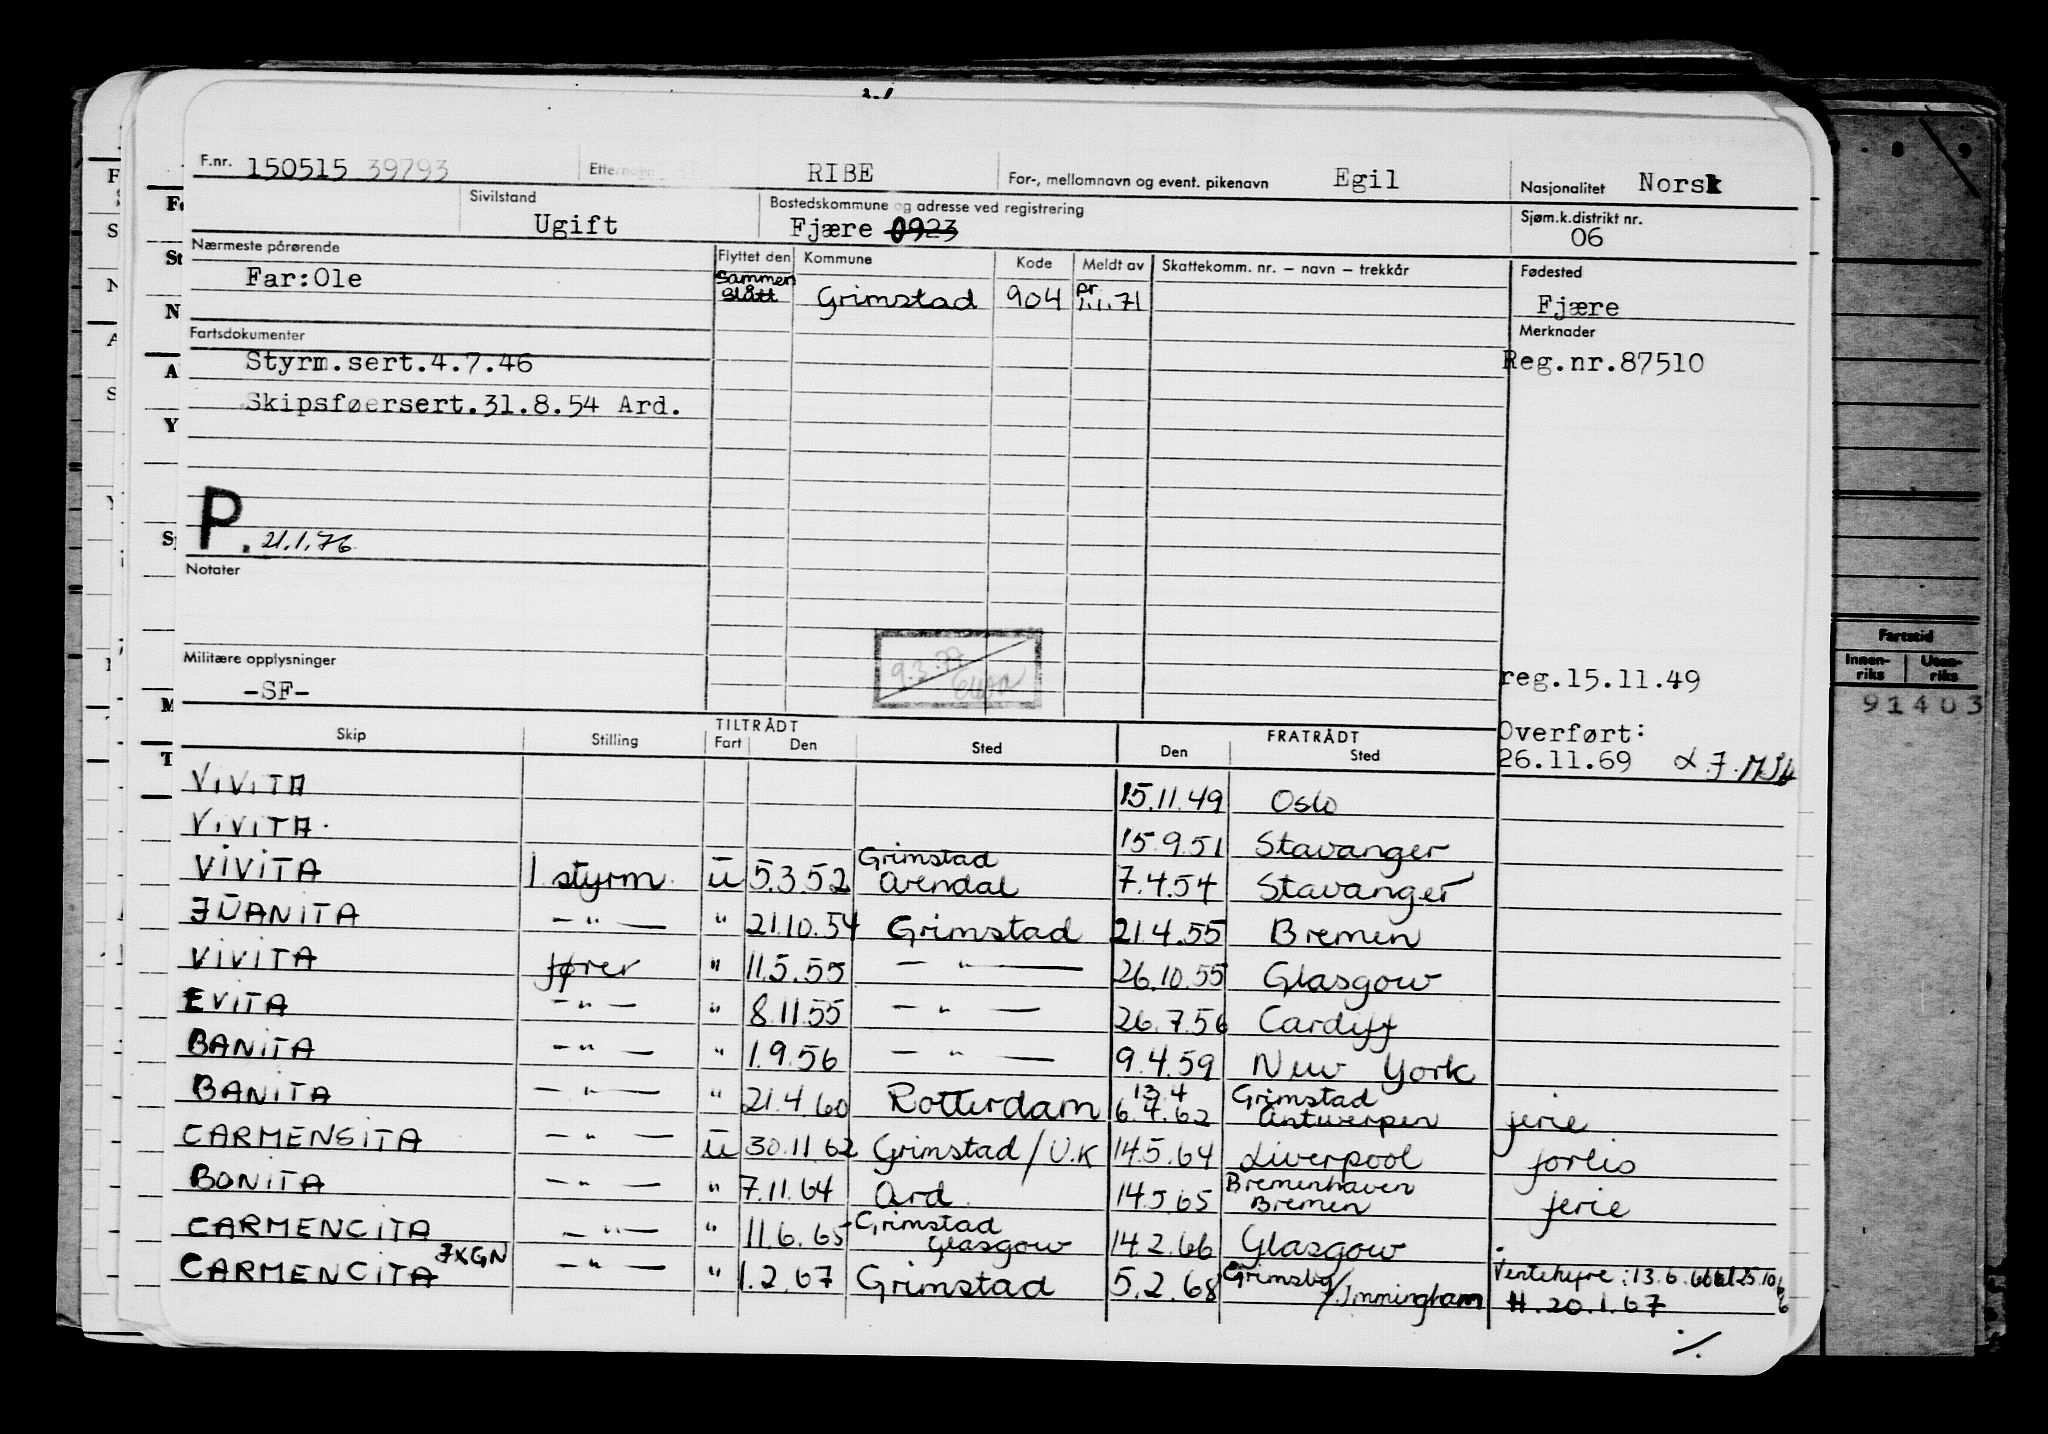 F.nr. 150515 39793 RIBE For-, mellomnavn og event. pikenavn Egil Nasjonalitet Norsk
Sivilstand Ugift Bostedskommune og adresse ved registrering Fjære 0923 Sjøm.k.distrikt nr. 06
Nærmeste pårørende Far:Ole
Flyttet den Kommune Kode Meldt av Skattekomm. nr. – navn – trekkår Fødested
Sammen slått Grimstad 904 pr. 1.1.71 Fjære
Fartsdokumenter Merknader
Styrm.sert.4.7.46 Reg.nr.87510
Skipsføersert.31.8.54 Ard.
P. 21.1.76
Notater
9.3.77
Militære opplysninger
-SF- reg.15.11.49
TILTRÅDT FRATRÅDT Overført:
Skip Stilling Fart Den Sted Den Sted 26.11.69
VIVITA 15.11.49 Oslo
VIVITA. 15.9.51 Stavanger
VIVITA 1 styrm. u 5.3 52 Grimstad Arendal 7.4.54 Stavanger
JUANITA — " — " 21.10.54 Grimstad 21.4.55 Bremen
VIVITA fører " 11.5.55 — " — 26.10.55 Glasgow
EVITA — " — " 8.11.55 — " — 26.7.56 Cardiff
BANITA — " — " 1.9.56 — " — 9.4.59 New York
BANITA — " — " 21.4.60 Rotterdam 13.4 6.4.62 Grimstad Antwerpen ferie
CARMENSITA — " — u 30.11 62 Grimstad / U.K 14.5.64 Liverpool forlis
BONITA — " — " 7.11.64 Ard. 14.5.65 Bremenhaven Bremen ferie
CARMENCITA — " — " 11.6.65 Grimstad Glasgow 14.2.66 Glasgow
CARMENCITA JXGN — " — " 1.2.67 Grimstad 5.2.68 Grimsby / Immingham Ventehyre: 13.6.66 til 25.10 66
H. 20.1.67
./.
Fartstid
Innen-riks Uten-riks
91403